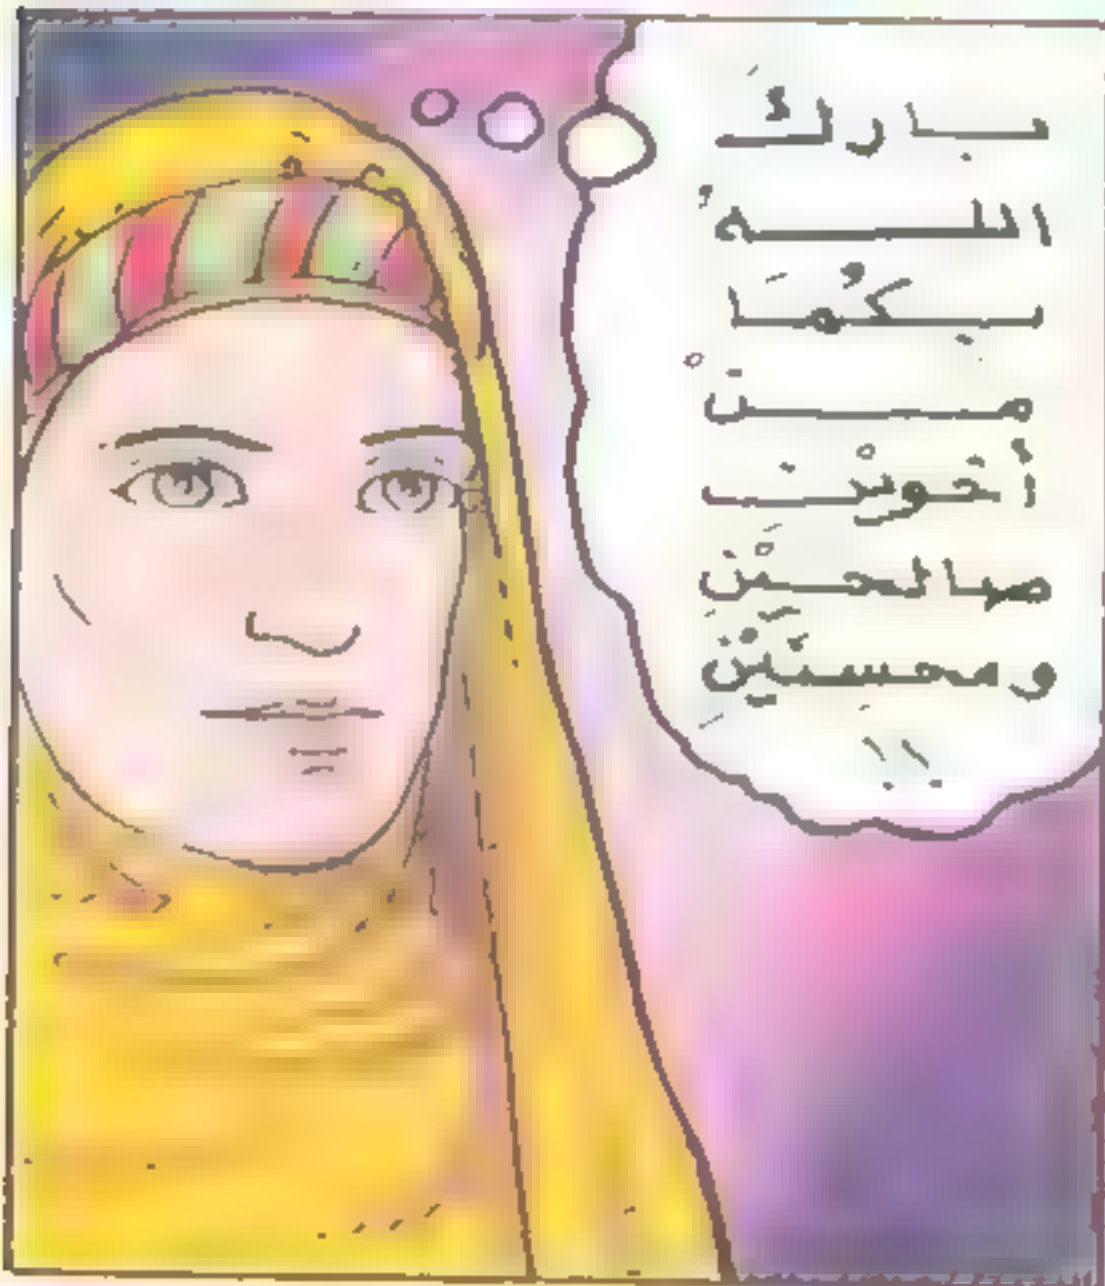 بارك
اللهُ
بكُمَا
منْ
أخَويْن
صالحَيْن
ومحسنَيْن
!!